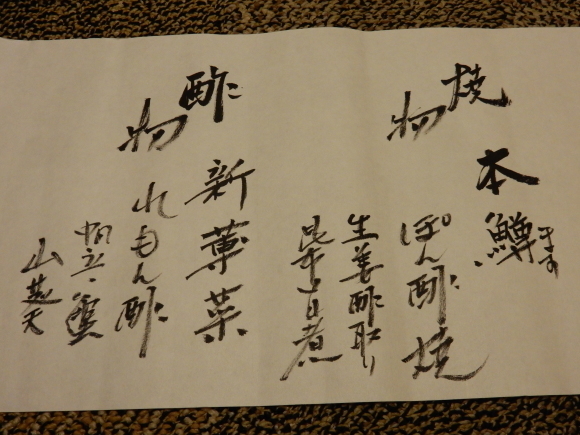 焼物
本鱒
ます
ぽん酢焼
生姜酢取り
昆布 煮
酢物
新蓴菜
れもん酢
帆立・蟹
山